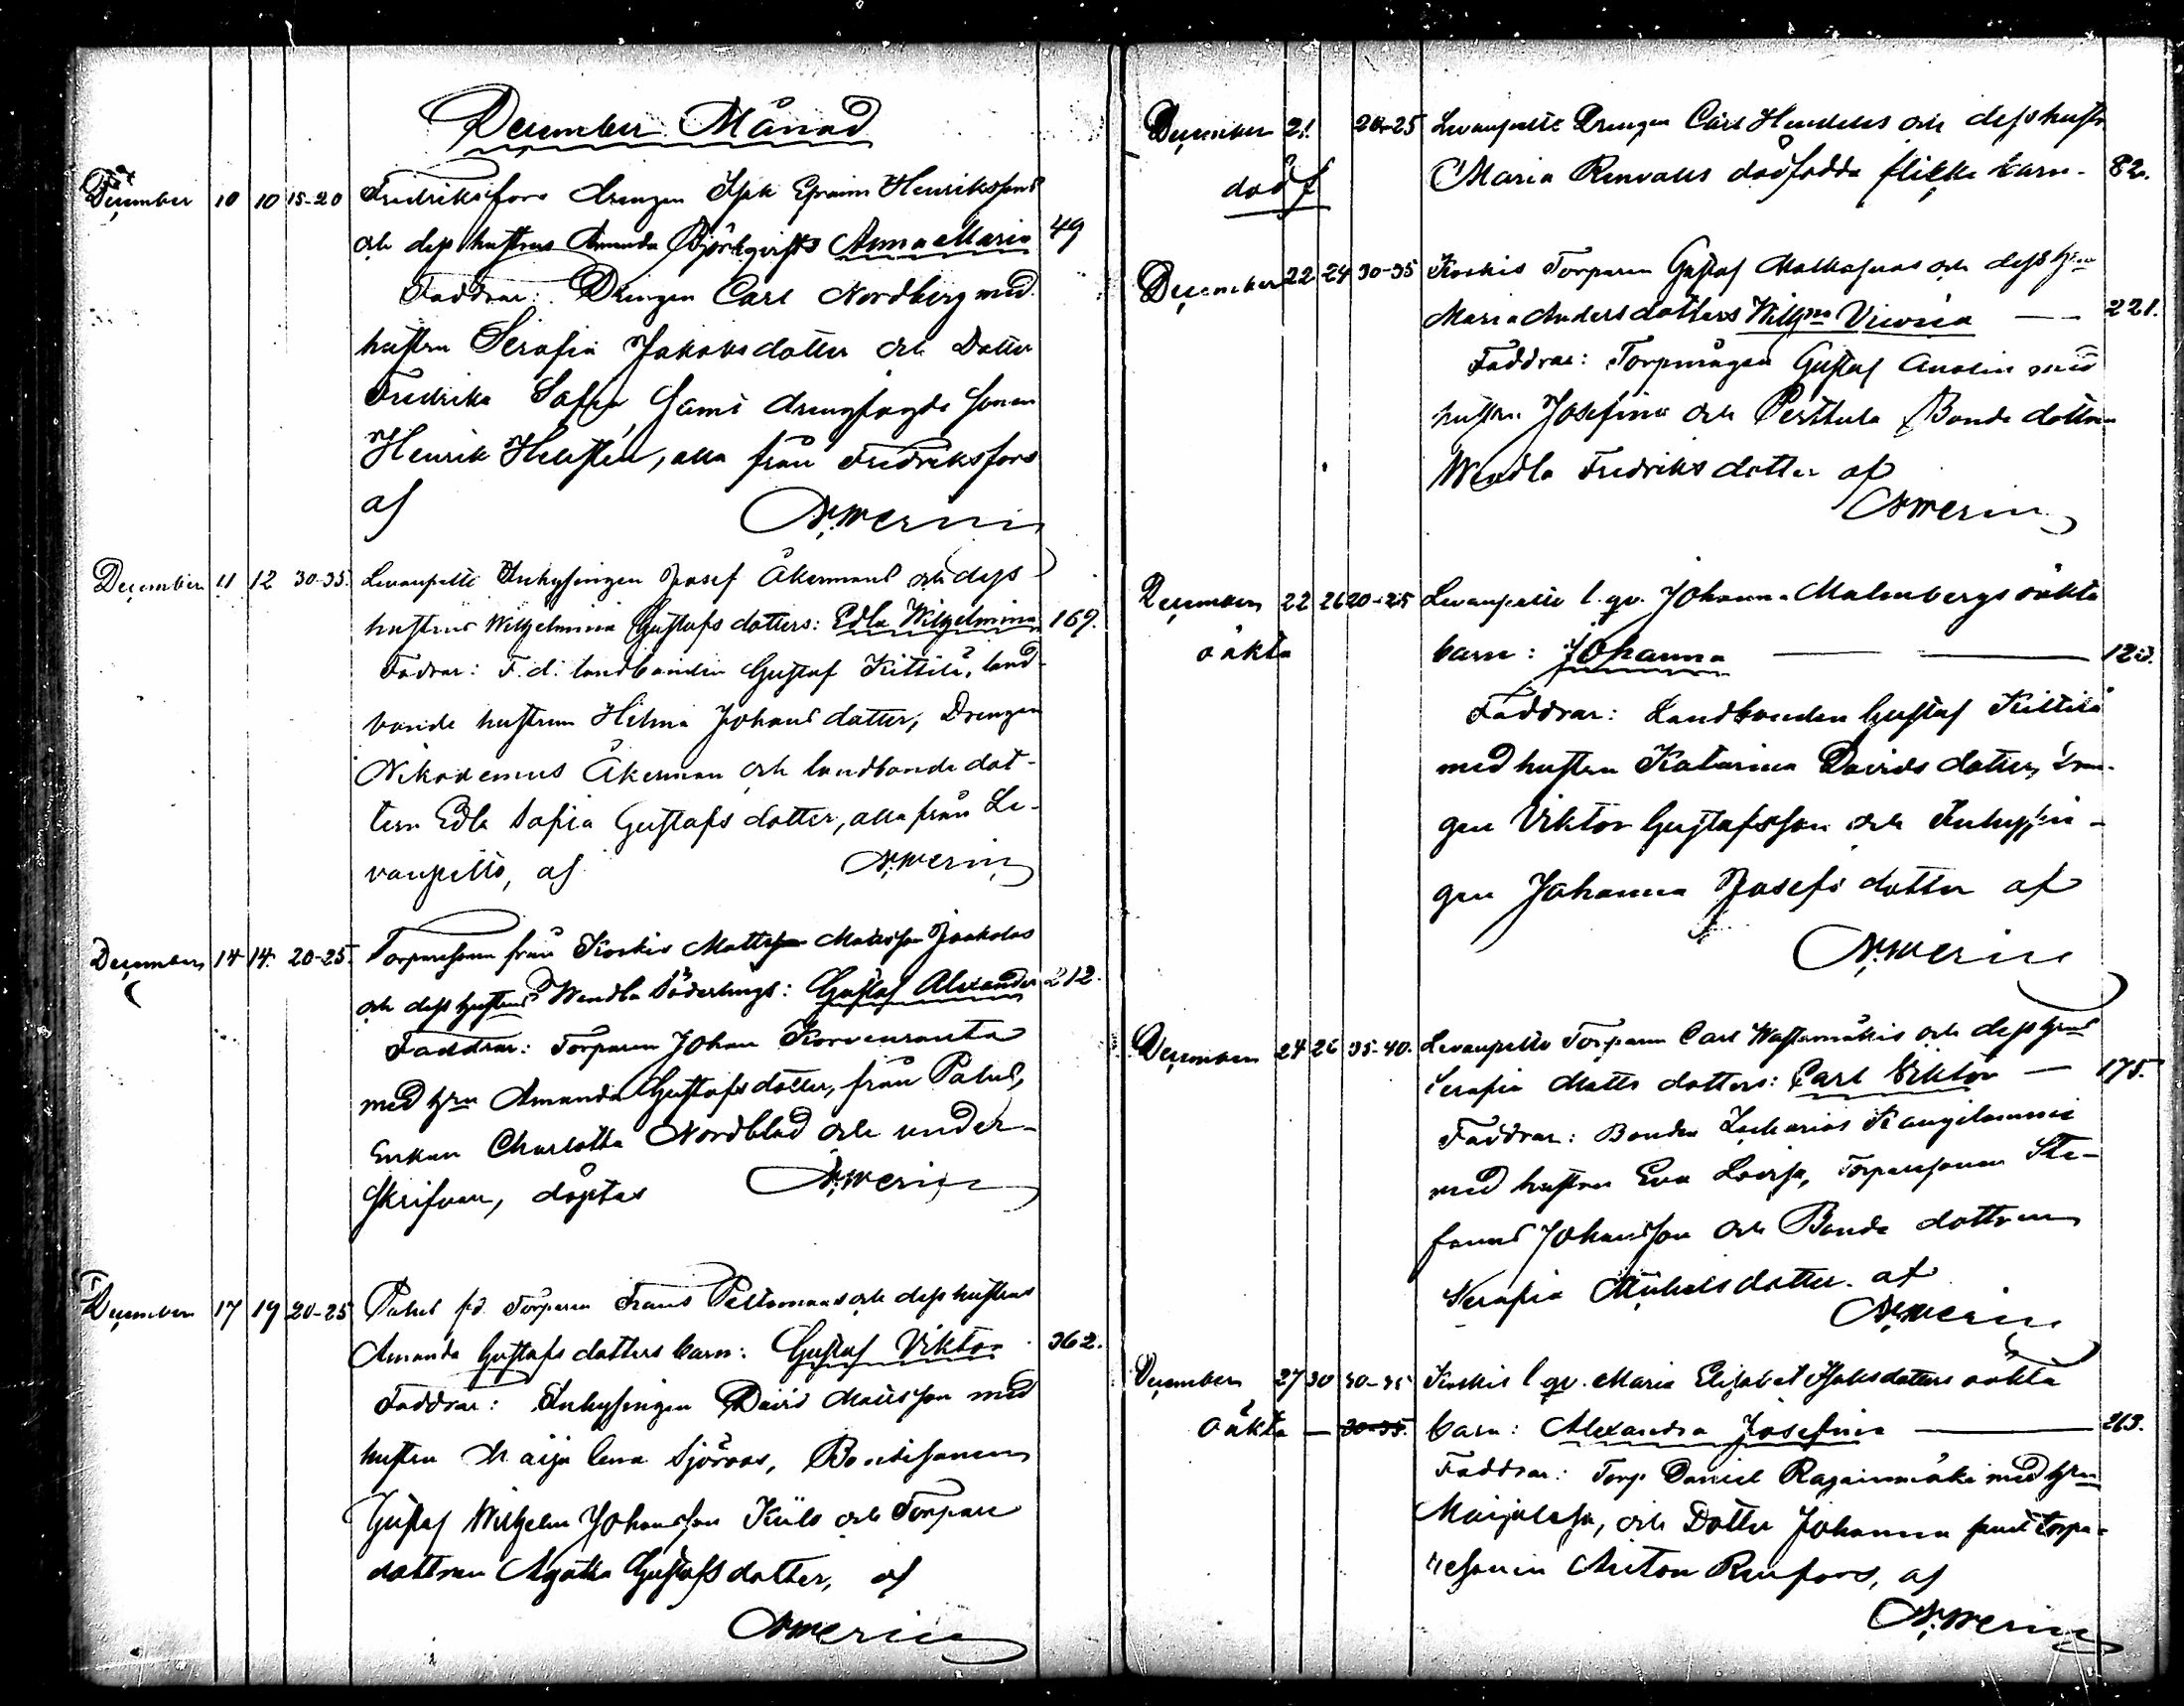 December Månad
December 10 10 15-20 Fredriksfors drengen Isak Efraim Henrikssons
och dess hustrus Amanda Björkqvists Anna Maria 49
Faddrar: Drengen Carl Nordberg med
hustru Serafia Jakobsdotter och Dotter
Fredrika Sofia, samt drengfogde sonen
Henrik Hellstén, alla från Fredriksfors
af
December 11 12 30-35. Levanpelto Inhysingen Josef Åkermans och dess
hustrus Wilhelmina Gustafs dotters: Edla Wilhelmina 169.
Fadrar: F.d. landbonden Gustaf Kittilä, land-
bonde hustrun Hilma Johans dotter, Drengen
Nikodemus Åkerman och landbonde dot-
tern Edla Sofia Gustafs dotter, alla från Le-
vanpelto, af
December 14 14. 20-25. Torparesonen från Koskis Matts Mattsson Jaakolas
och dess hustrus Wendla Söderlings: Gustaf Alexander 212.
Faddrar: Torparen Johan Korvenranta
med hru Amanda Gustafs dotter, från Palus,
Enkan Charlotta Nordblad och under-
skrifven, döptes
December 17 19 20-25 Palus fd. Torparen Frans Peltomaas och dess hustrus
Amanda Gustafs dotters barn: Gustaf Viktor 362.
Faddrar: Inhysingen David Mattsson med
hustru Maija Lena Sjöroos, Bondesonen
Gustaf Wilhelm Johansson Kiilo och Torpare
dottren Agatha Gustafs dotter, af
December 21 20-25 Levanpelto Drengen Carl Hendells och dess hustru
död f Maria Renvalls dödfödda flicke barn. 82.
December 22 24 30-35 Koskis Torparen Gustaf och dess hru
Maria Anders dotters Wilhma Vicoria — 221.
Faddrar: Torpmågen Gustaf med
hustru Josefina och Perttula Bonde dottren
Wendla Fredriks dotter af
December 22 26 20-25 Levanpelto l. qv. Johanna Malmbergs oäkta
oäkta barn: Johanna — 123.
Faddrar: Landbonden Gustaf Kittilä
med hustru Katarina Davids dotter, Dren-
gen Viktor Gustafsson och Inhysin-
gen Johanna Josefs dotter af
December 24 26 35-40. Levanpelto Torparen Carl Wastamäkis och dess hrus
Serafia Matts dotters: Carl Viktor — 175.
Faddrar: Bonden Zacharias Kangilaminen
med hustru Eva Lovisa, Torparesonen Ste-
fanus Johansson och Bonde dottren
Serafia Michels dotter. af
December 27 30 30-35 Koskis l qv. Maria Elisabet Isaksdotters oäkta
oäkta — 30-35. barn: Alexandra Josefina — 263.
Faddrar: Torp Daniel Rajainmäki med hru
Maijalisa, och Dotter Johanna samt torpa-
resonen Anton Renfors, af